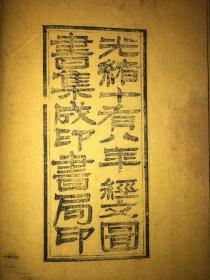 光緒十有八年經圖
書集成印書局印